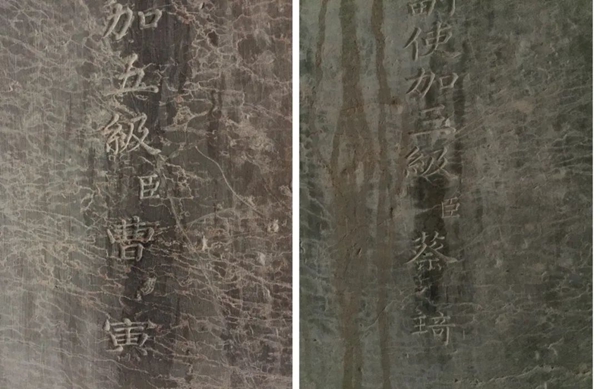 加五級臣曹寅
副使加三級臣蔡琦